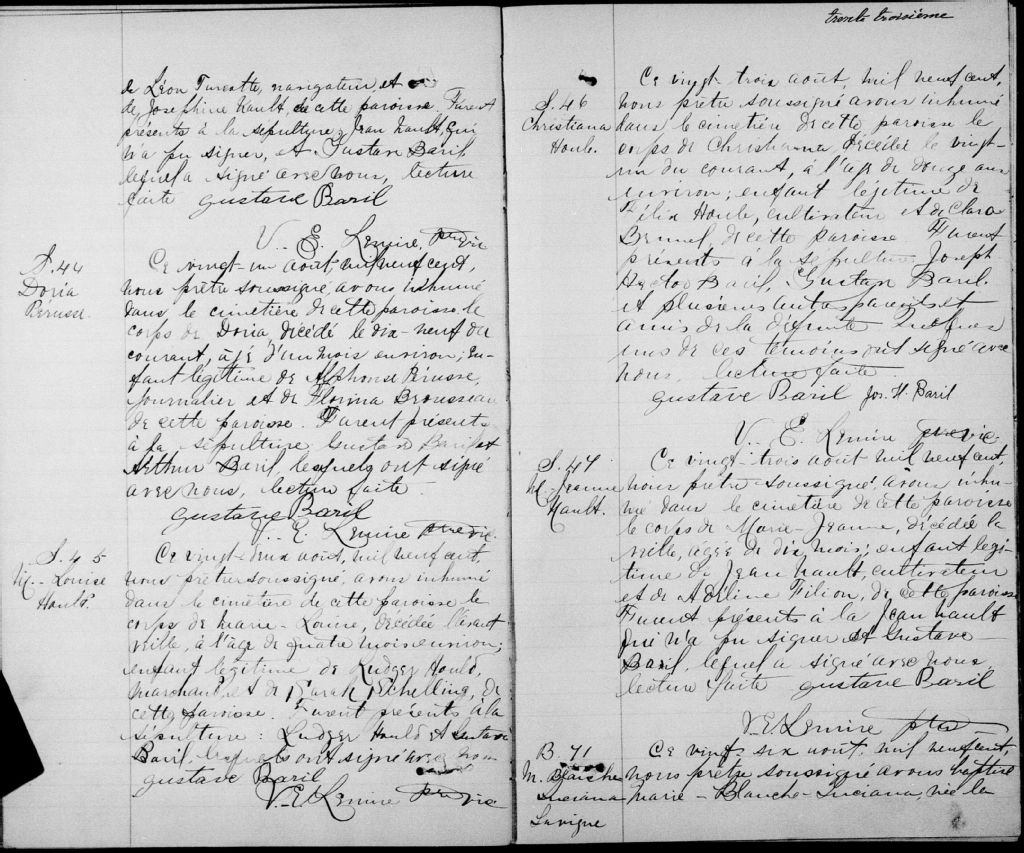 de Léon Turcotte, navigateur, et
de Josephine Hault, de cette paroisse. Furent
présents à la sépulture; Jean Hault, qui
n'a pu signer, et Gustave Baril
lequel a signé avec nous, lecture
faite Gustave Baril
V. E. Lemire, ptre vic
S. 44
Doria
Perusse.
Ce vingt-un août, mil neuf cent,
nous prêtre soussigné, avons inhumé
dans le cimetière de cette paroisse le
corps de Doria, décédé le dix-neuf du
courant, âgé d'un mois environ; en-
fant légitime de Alphonse Pérusse,
journalier et de Florina Brousseau
de cette paroisse. Furent présents
à la sépulture Gustave Baril et
Arthur Baril, lesquels ont signé
avec nous, lecture faite.
Gustave Baril
V. E. Lemire ptre vic.
S. 45
M.- Louise
Hould.
Ce vingt-deux août, mil neuf cent,
nous prêtre soussigné, avons inhumé
dans le cimetière de cette paroisse le
corps de Marie-Louise, décédée l'avant
veille, à l'âge de quatre mois environ;
enfant légitime de Ludger Hould,
marchand, et de Sarah Schelling, de
cette paroisse. Furent présents à la
sépulture: Ludger Hould et Gustave
Baril, lesquels ont signé avec nous
Gustave Baril
V. E. Lemire ptre vic
trente troisième
S. 46
Christiana
Houle.
Ce vingt-trois août, mil neuf cent,
nous prêtre soussigné avons inhumé
dans le cimetière de cette paroisse le
corps de Christianna décédée le vingt-
un du courant, à l'âge de douze ans
environ; enfant légitime de
Félix Houle, cultivateur et de Clara
Brunel, de cette paroisse Furent
présents à la sépulture Joseph
Hector Baril, Gustave Baril.
et plusieurs autres parents et
amis de la défunte quelques
uns de ces témoins ont signé avec
nous, lecture faite
Gustave Baril Jos. H. Baril
V. E. Lemire ptre vic.
S. 47
M.-Jeanne
Hault.
Ce vingt-trois août mil neuf cent,
nous prêtre soussigné, avons inhu-
mé dans le cimetière de cette paroisse
le corps de Marie-Jeanne, décédée la
veille, âgée de dix mois; enfant légi-
time de Jean Hault, cultivateur
et de Adeline Filion, de cette paroisse
Furent présents à la Jean Hault
qui n'a pu signer et Gustave
Baril, lequel a signé avec nous
lecture faite Gustave Baril
V. E. Lemire ptre
B 71
M. Blanche
Luciana
Lavigne
Ce vingt six août, mil neuf cent,
nous prêtre soussigné avons baptisé
Marie-Blanche-Luciana, née la